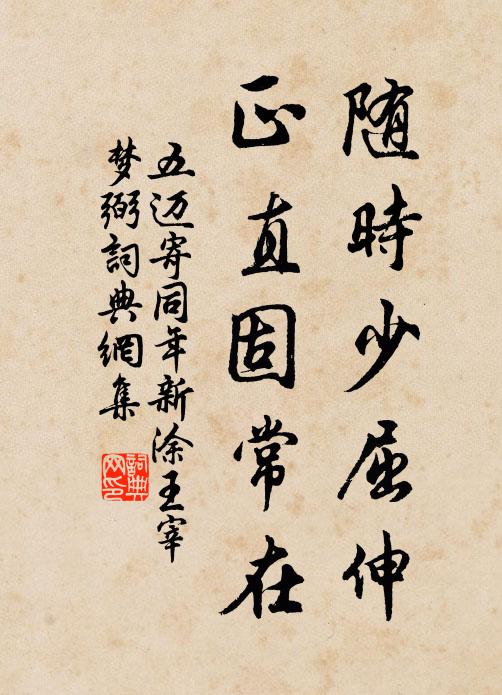 随時少屈伸
正直固常在
五迈寄同年新涂王宰
梦弼詞典網集
詞典
网印